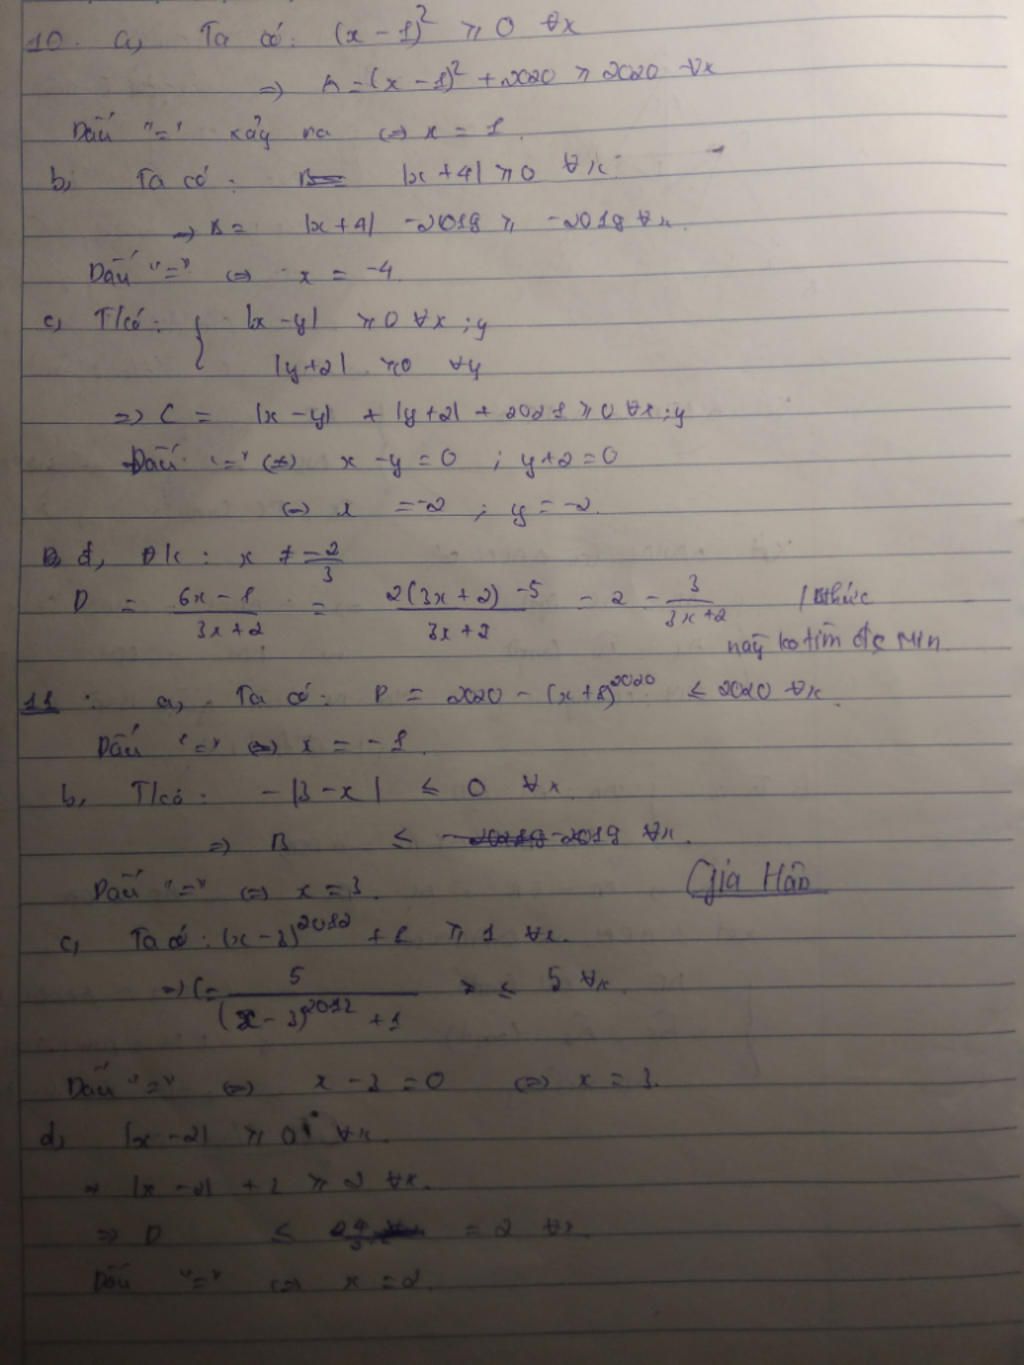 10. a, Ta có: (x - 1)² ⩾ 0 ∀x
=> A = (x - 1)² + 2020 ⩾ 2020 ∀x
Dấu "=" xảy ra <=> x = 1.
b, Ta có: |x + 4| ⩾ 0 ∀x
=> B = |x + 4| - 2019 ⩾ -2019 ∀x.
Dấu "=" <=> x = -4.
c, T/có: { |x - y| ⩾ 0 ∀x ; y
|y + 2| ⩾ 0 ∀y
=> C = |x - y| + |y + 2| + 2021 ⩾ 0 ∀x ; y
Dấu "=" <=> x - y = 0 ; y + 2 = 0
<=> x = -2 ; y = -2.
d, ĐK: x ≠ -2/3
D = (6x - 1)/(3x + 2) = (2(3x + 2) - 5)/(3x + 2) = 2 - 3/(3x + 2)
này ko tìm đc Min
11: a, Ta có: P = 2020 - (x + 1)²⁰²⁰ ≤ 2020 ∀x.
Dấu "=" <=> x = -1.
b, T/có: -|3 - x| ≤ 0 ∀x.
=> B ≤ -2019 ∀x.
Dấu "=" <=> x = 3. Gia Hân
c, Ta có: (x - 3)²⁰¹² + 1 ⩾ 1 ∀x.
=> C = 5/((x - 3)²⁰¹² + 1) ≤ 5 ∀x.
Dấu "=" <=> x - 3 = 0 <=> x = 3.
d, |x - 2| ⩾ 0 ∀x.
=> |x - 2| + 2 ⩾ 2 ∀x.
=> D ≤ = 2 ∀x.
Dấu "=" <=> x = 2.